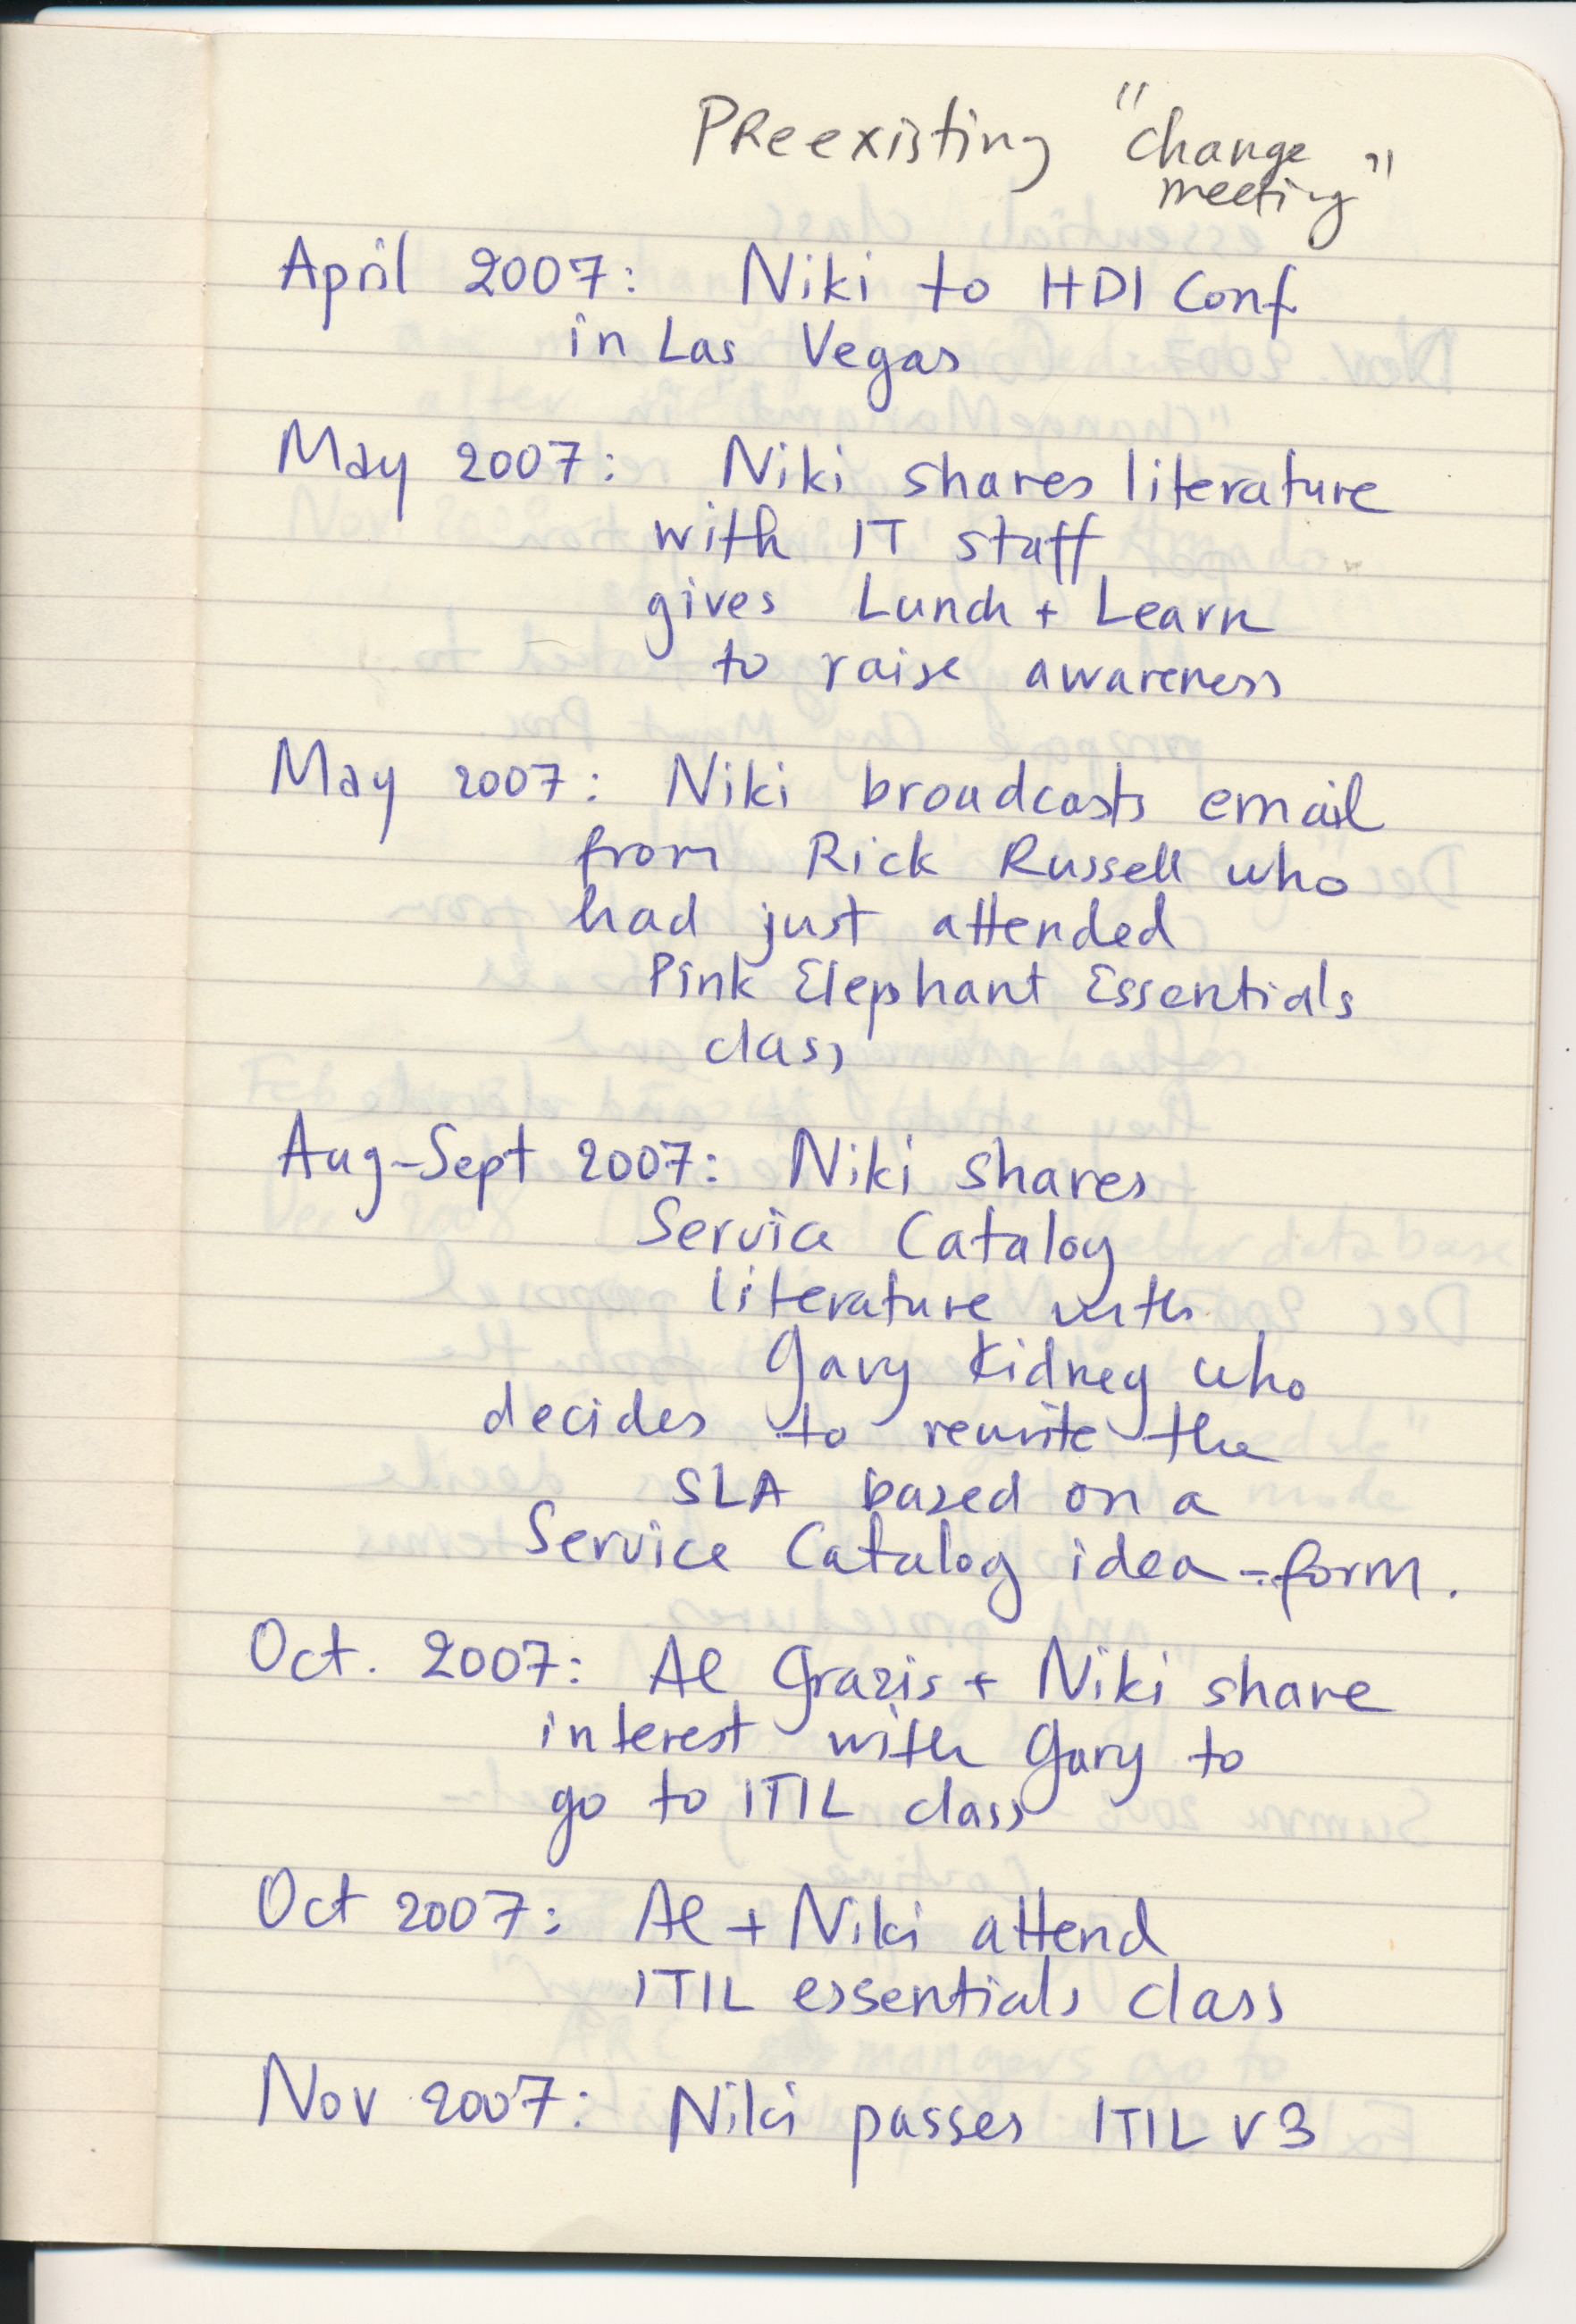 Preexisting "change
meeting"
April 2007: Niki to HDI Conf
in Las Vegas
May 2007: Niki shares literature
with IT staff
gives Lunch + Learn
to raise awareness
May 2007: Niki broadcasts email
from Rick Russell who
had just attended
Pink Elephant Essentials
class
Aug-Sept 2007: Niki shares
Service Catalog
literature with
Gary Kidney who
decides to rewrite the
SLA based on a
Service Catalog idea-form.
Oct. 2007: Al Grazis + Niki share
interest with Gary to
go to ITIL class
Oct 2007: Al + Niki attend
ITIL essentials class
Nov 2007: Niki passes ITIL V3